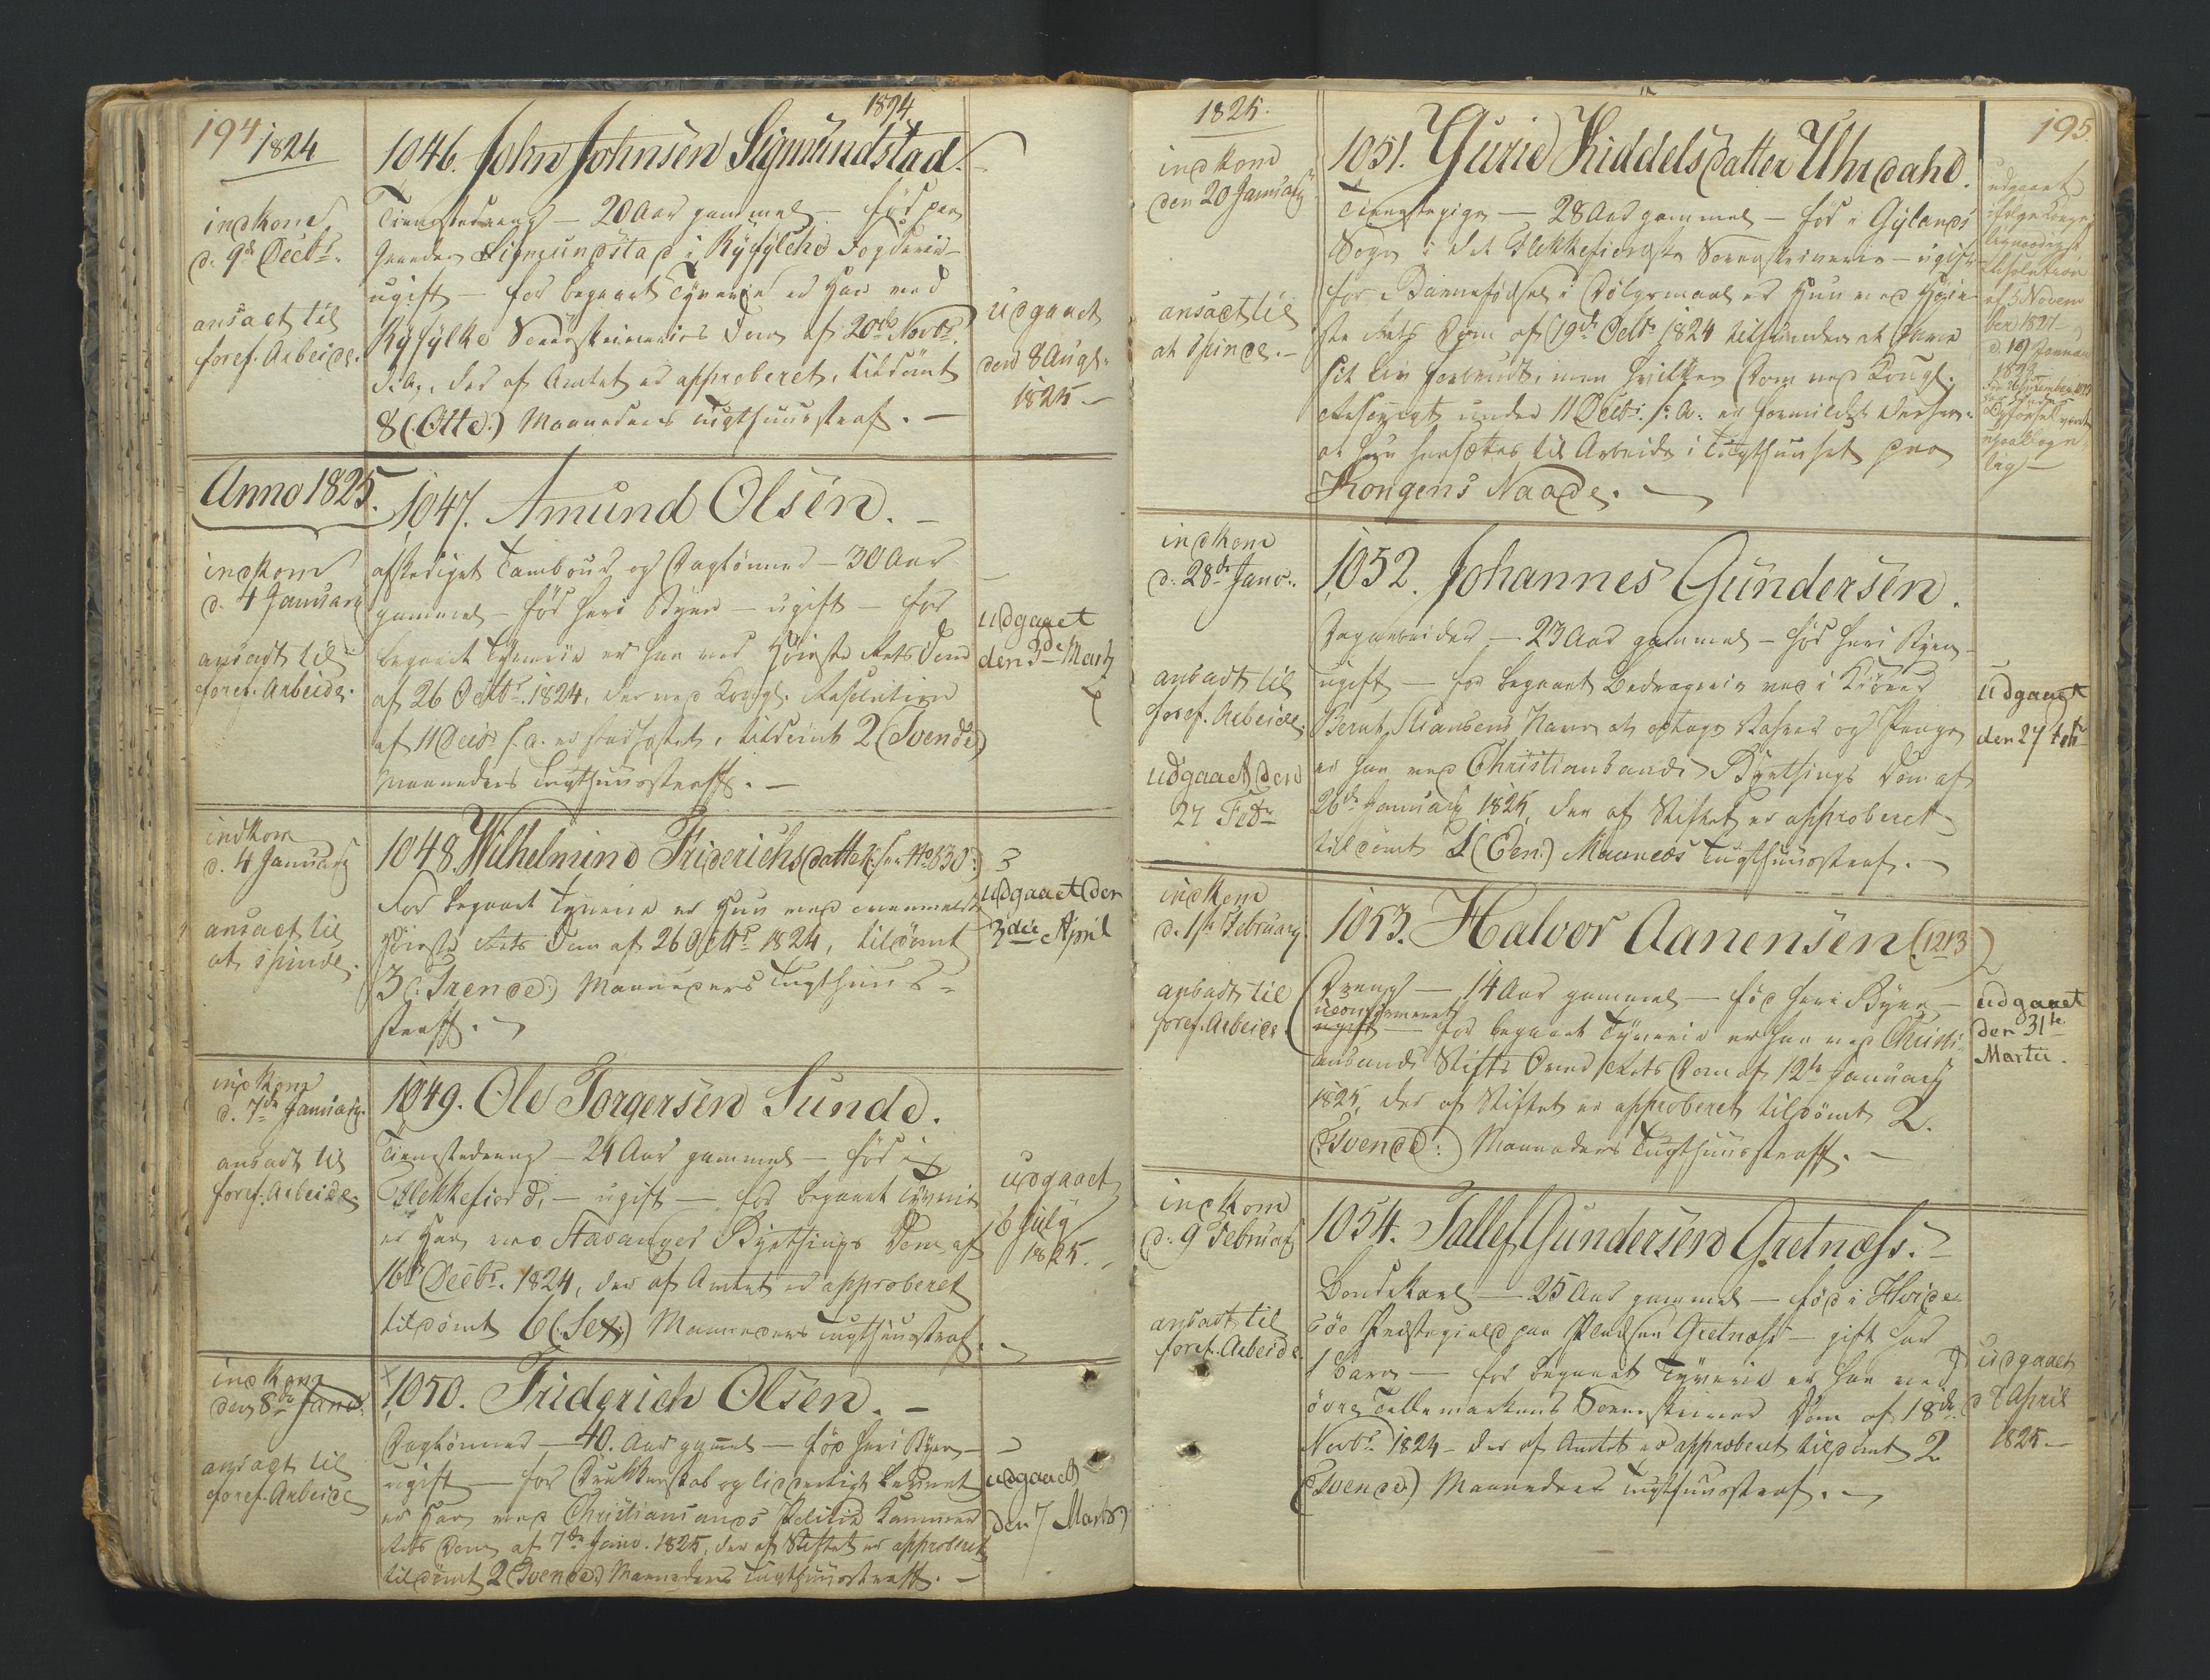 194
1824
indkom
d. 9de Decbr.
ansadt til
foref. Arbeide.
1894
1046. John Johnsen Sigmundstad.
Tienestedreng — 20 Aar gammel — född paa
Gaarden Sigmundstad i Ryfylche Fogderie —
ugift — for begaaet Tyverie er Han ved
Ryfylke Sorenskriveries Dom af 20de Novbr.
d. A., der af Amtet er approberet, tildömt
8 (Otte) Maaneders Tugthuusstraf. —
udgaaet
den 8 Augt.
1825 —
Anno 1825.
indkom
d. 4 January
ansadt til
foref. Arbeide.
1047. Amund Olsen. —
afskediget Tambour og Daglönner — 30 Aar
gammel — föd her i Byen — ugift — for
begaaet Tyverie er han ved Höieste Rets Dom
af 26 Octbr. 1824, der ved Kongl. Resolution
af 11 Decbr. s. a. er stadfæstet, tildömt 2 (Tvende)
Maaneders Tugthuusstraff. —
udgaaet
den 3de Marty
indkom
d. 4 January
ansadt til
at spinde.
1048. Wilhelmine Friderichsdatter (: see No 830 :)
For begaaet Tyverie er Hun ved ovenmeldte
Höieste Rets Dom af 26 Octbr. 1824, tildömt
3 (: Trende :) Maaneders Tugthuus-
straff. —
3
udgaaet den
3die April
indkom
d. 7de January.
ansadt til
foref. Arbeide.
1049. Ole Torgersen Sunde.
Tienestedreng — 24 Aar gammel — föd i
Flekkefiord, — ugift — for begaaet Tyverie
er Han ved Stavanger Byethings Dom af
16de Decbr. 1824, der af Amtet er approberet
tildömt 6 (: Sex :) Maaneders Tugthuusstraf. —
udgaaet
6 July
1825. —
indkom
den 8de Janr.
ansadt til
foref. Arbeide
1050. Friderich Olsen. —
Daglönner — 40. Aar gammel — föd her i Byen —
ugift — for Drukkenskab og liderligt Levnet
er Han ved Christiansands Politie Kammer
Rets Dom af 7de Janr. 1825, der af Stiftet er approberet
tildömt 2 (Tvende) Maaneders Tugthuusstraff. —
udgaaet
den 7 Marts
1825.
195
indkom
den 20 January
ansadt til
at spinde. —
1051. Gurie Kiddelsdatter Uhrdahl.
Tienestepige — 28 Aar gammel — föd i Gylands
Sogn i det Flekkefiordske Sorenskriverie — ugift —
for Barnefödsel i Dölgsmaal er Hun ved Höie-
ste Rets Dom af 19de Octbr. 1824 tilfunden at have
sit Liv forbrudt, men hvilken Dom ved Kongl.
Rescript under 11 Decbr. s. A. er formildet derhen
at hun hensættes til Arbeide i Tugthuuset paa
Kongens Naade. —
udgaaet
ifölge Konge-
lig naadigst
Resolution
af 5 Novem
ber 1827 —
d. 19 Januar
1828
indkom
d. 28de Janr.
ansadt til
foref. Arbeide.
udgaaet den
27 Febr
1052. Johannes Gundersen.
Dagarbeider — 23 Aar gammel — föd her i Byen —
ugift — for begaaet Bedragerie ved i Kiöbmd
Bernt Hansens Navn at optage Vahrer og Penge
er han ved Christiansands Byethings Dom af
26de January 1825, der af Stiftet er approberet
tildömt 1 (Een) Maaneds Tugthuusstraf. —
udgaaet
den 27 Febr
indkom
d. 1ste February
ansadt til
foref. Arbeide
1053. Halvor Aanensen (1213)
Dreng — 14 Aar gammel — föd her i Byen —
uconfirmeret
ugift — for begaaet Tyverie er han ved Christi-
ansands Stifts Over Rets Dom af 12te January
1825, der af Stiftet er approberet tildömt 2.
(Tvende :) Maaneders Tugthuusstraff. —
udgaaet
den 31te
Martii.
indkom
d. 9 Februar
ansadt til
foref. Arbeide.
1054. Tallef Gundersen Gretnæss. —
Bondekarl — 25 Aar gammel — föd i Hvide-
söe Præstegield paa Pladsen Gretnæss — gift har
1 Barn — for begaaet Tyverie er han ved
övre Tellemarkens Sorenskriver Dom af 18de
Novbr. 1824 — der af Amtet er approberet tildömt 2
(Tvende) Maaneders Tugthuusstraf. —
udgaaet
d 8 April
1825 —